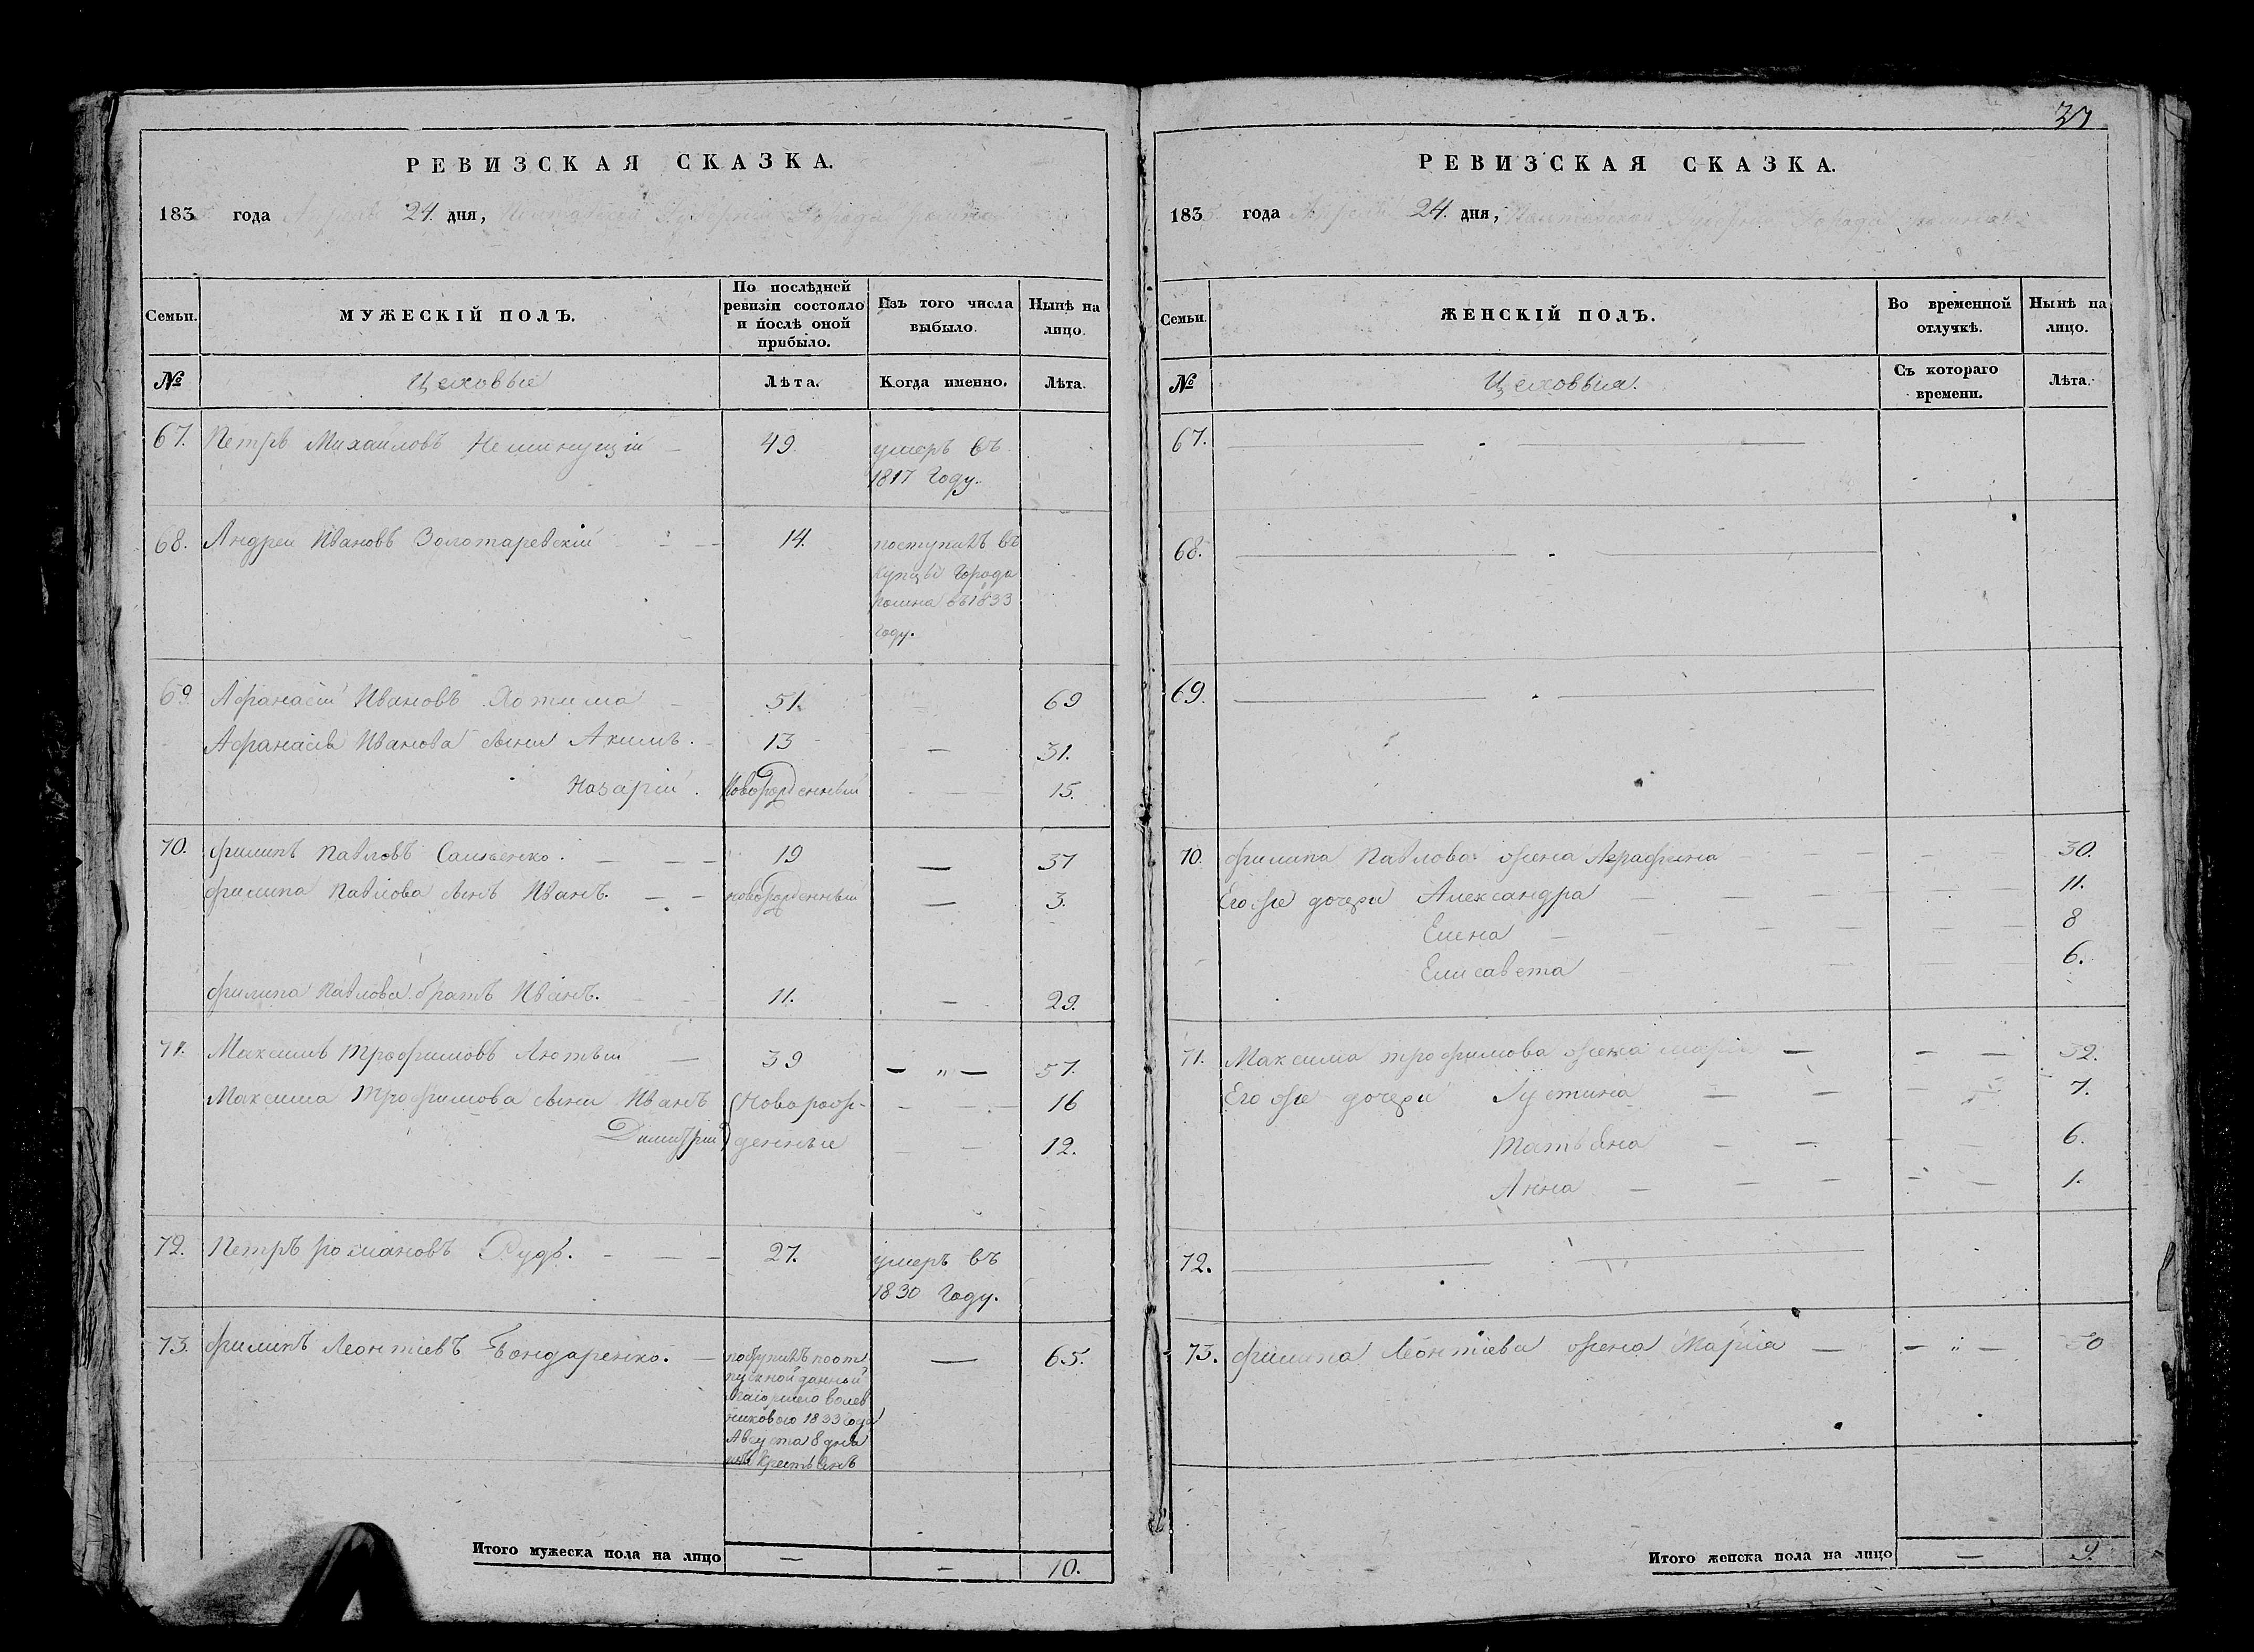 РЕВИЗСКАЯ СКАЗКА.
183 года Апреля 24. дня, Полтавской Губернии Города ромна
Семьи. МУЖЕСКІЙ ПОЛЪ. По послѣдней ревизіи состояло и послѣ оной прибыло. Изъ того числа выбыло. Нынѣ на лицо.
№ Цеховые Лѣта. Когда именно. Лѣта.
67. Петръ Михайловъ 49 умеръ въ
1817 Году.
68. Андрей Ивановъ Золотаревскій 14. поступилъ въ
купцы Города
ромна въ 1833
году.
69 Афанасій Ивановъ 51. 69
Афанасія Иванова сыны Акимъ. 13 — 31.
Назарій. Новорожденный 15.
70. Филипъ Павловъ 19 — 37
Филипа Павлова сынъ Иванъ. новорожденный — 3.
Филипа Павлова братъ Иванъ. 11. — 29.
71. Максимъ Трофимовъ Лютый 39 — „ — 57.
Максима Трофимова сыны Иванъ (Новорож- 16
Димитрій) денные 12.
72. Петръ романовъ Рудь. 27. умеръ въ
1830 Году.
73. Филипъ Леонтіевъ Бондаренко. — поступилъ по от — 65.
пускной данной
1833 года
Августа 8 дня
изъ крестьянъ
Итого мужеска пола на лицо — — 10.
37
РЕВИЗСКАЯ СКАЗКА.
183 года Апреля 24. дня, Полтавской Губерніи Города ромна
Семьи. ЖЕНСКІЙ ПОЛЪ. Во временной отлучкѣ. Нынѣ на лицо.
№ Цеховыя. Съ котораго времени. Лѣта.
67.
68.
69.
70. Филипа Павлова жена Аграфена 30.
Его же дочери Александра 11.
Елена 8
Елисавета 6.
71. Максима трофимова жена марія — 32.
Его же дочери Іустина 7.
Татьяна 6.
Анна 1.
72.
73. Филипа Леонтіева жена Марія — — „ — 50
Итого женска пола на лицо — 9.